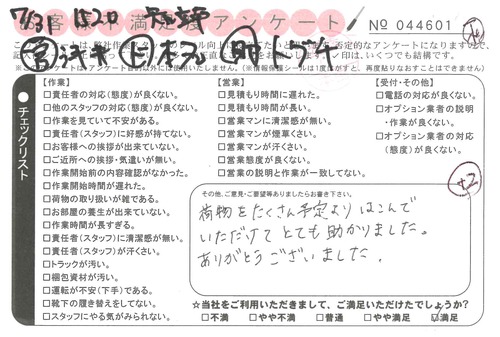 7/31 15:20
お客様不満足度アンケート
No 044601
【作業】
□責任者の対応(態度)が良くない。
□他のスタッフの対応(態度)が良くない。
□作業を見ていて不安がある。
□責任者(スタッフ)に好感が持てない。
□お客様への挨拶が出来ていない。
□ご近所への挨拶・気遣いが無い。
□作業開始前の内容確認がなかった。
□作業開始時間が遅れた。
□荷物の取り扱いが雑である。
□お部屋の養生が出来ていない。
□作業時間が長すぎる。
□責任者(スタッフ)に清潔感が無い。
□責任者(スタッフ)が汗くさい。
□トラックが汚い。
□梱包資材が汚い。
□運転が不安(下手)である。
□靴下の履き替えをしてない。
□スタッフにやる気がみられない。
【営業】
□見積もり時間に遅れた。
□見積もり時間が長い。
□営業マンに清潔感が無い。
□営業マンが煙草くさい。
□営業マンが汗くさい。
□営業態度が良くない。
□営業の説明と作業が一致してない。
【受付・その他】
□電話の対応が良くない。
□オプション業者の説明
・作業が良くない。
□オプション業者の対応
(態度)が良くない。
チェックリスト
+2
その他、ご意見・ご要望等ありましたらお書き下さい。
荷物をたくさん予定よりはこんで
いただけて とても助かりました。
ありがとうございました。
☆当社をご利用いただきまして、ご満足いただけたでしょうか?
□不満 □やや不満 □普通 □やや満足 ☑満足